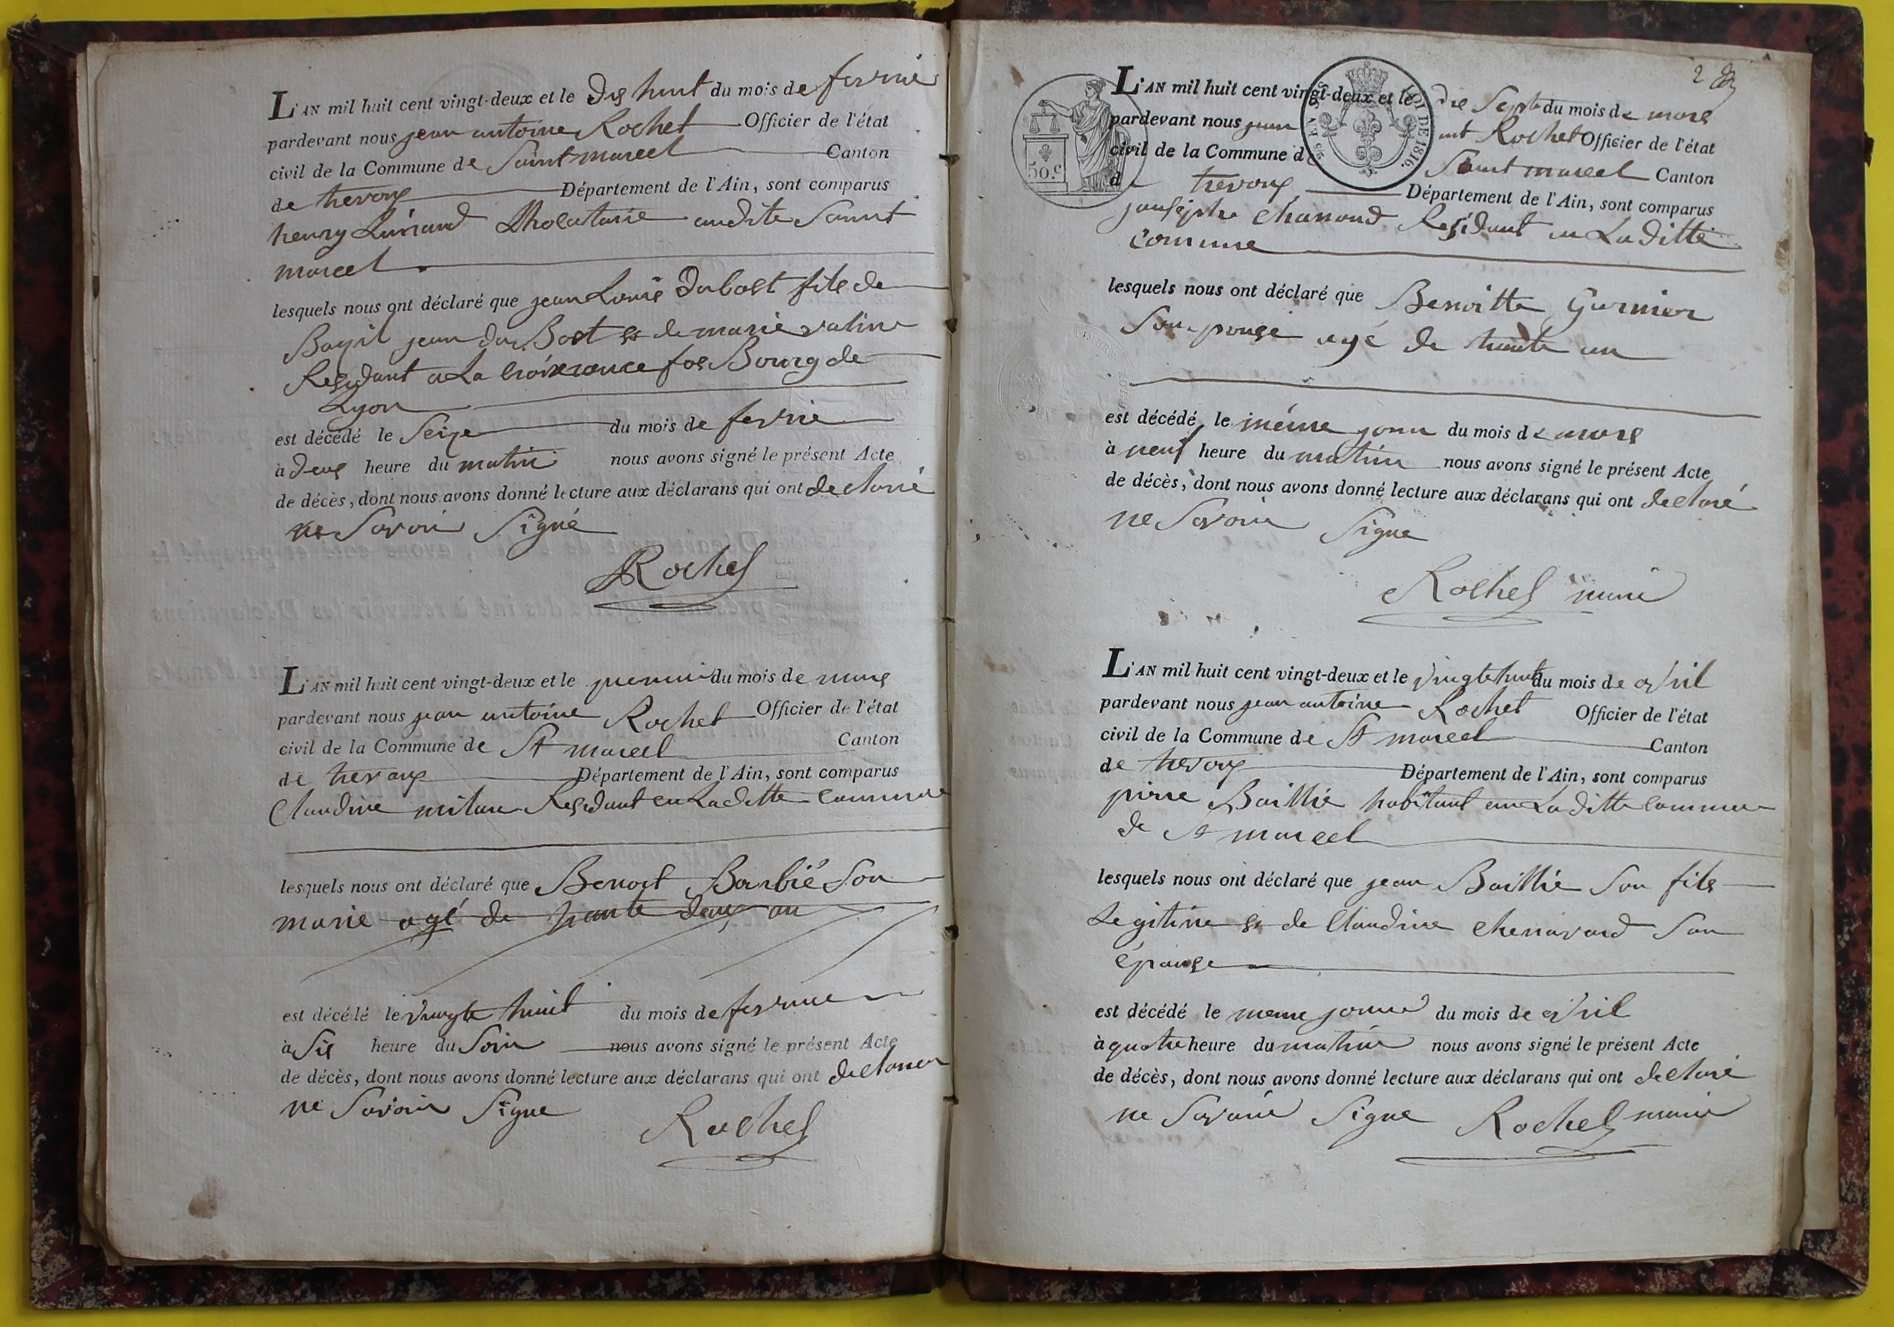 L'AN mil huit cent vingt-deux et le dis huit du mois de fevrie
pardevant nous jean antoine Rochet Officier de l'état
civil de la Commune de Saint marcel Canton
de trevoux Département de l'Ain, sont comparus
henry audite Saint
marcel
lesquels nous ont déclaré que jean Louis Dubost fils de
jean du Bost et de marie
Residant a La Bourg de
Lyon
est décédé le Seize du mois de fevrie
à deus heure du matin nous avons signé le présent Acte
de décès, dont nous avons donné lecture aux déclarans qui ont declaré
ne Savoir Signé
Rochet
L'AN mil huit cent vingt-deux et le premie du mois de mars
pardevant nous jean antoine Rochet Officier de l'état
civil de la Commune de St marcel Canton
de trevoux Département de l'Ain, sont comparus
Claudine milan Residant en Laditte commune
lesquels nous ont déclaré que Benoit Barbié Son
marie agé de trante deux an
est décédé le vingte huit du mois de fevrie
à Sis heure du Soir nous avons signé le présent Acte
de décès, dont nous avons donné lecture aux déclarans qui ont
ne Savoir Signe
Rochet
2
50.c
LOI DE 1816.
L'AN mil huit cent vingt-deux et le dis Septe du mois de mars
pardevant nous jean ant Rochet Officier de l'état
civil de la Commune de Saint marcel Canton
de trevoux Département de l'Ain, sont comparus
Residant en Laditte
commune
lesquels nous ont déclaré que Benoitte Garnier
Son epouse agé de trante an
est décédé le même jour du mois de mars
à neuf heure du matin nous avons signé le présent Acte
de décès, dont nous avons donné lecture aux déclarans qui ont declaré
ne Savoir Signe
Rochet maire
L'AN mil huit cent vingt-deux et le vingte huit du mois de avril
pardevant nous jean antoine Rochet Officier de l'état
civil de la Commune de St marcel Canton
de trevoux Département de l'Ain, sont comparus
pierre Baillié habitant en Laditte commune
de St marcel
lesquels nous ont déclaré que jean Baillié Son fils
Legitime et de Claudine Chenavard Son
épouse
est décédé le meme jour du mois de avril
à quatre heure du matin nous avons signé le présent Acte
de décès, dont nous avons donné lecture aux déclarans qui ont declaré
ne Savoir Signe Rochet maire